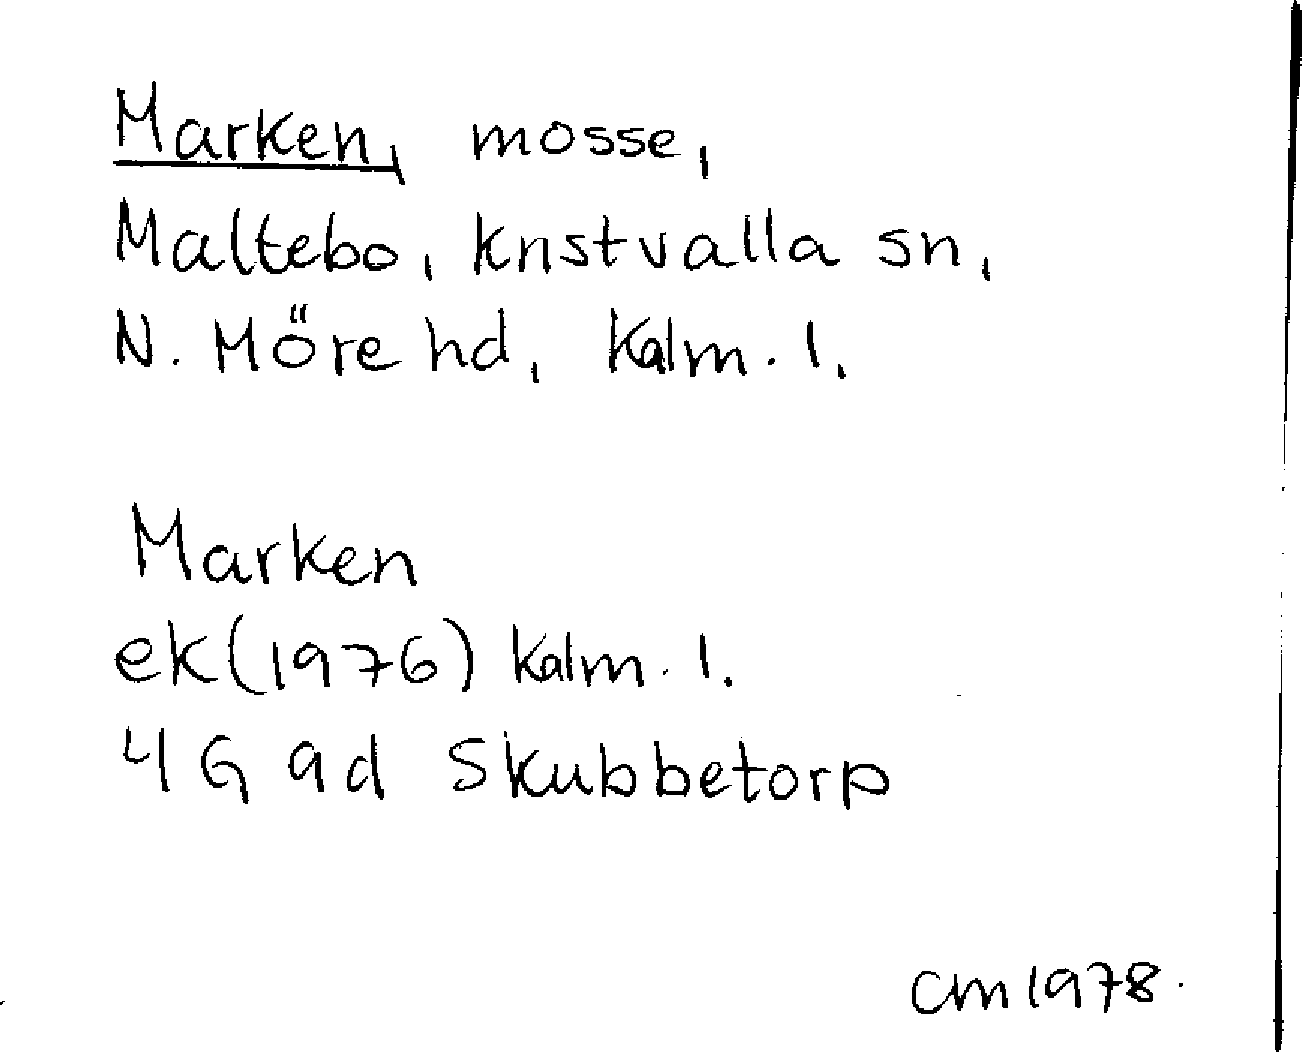 Marken, mosse,
Maltebo, Kristvalla sn,
N. Möre hd, Kalm. l.
Marken
ek(1976) Kalm. l.
4G9d Skubbetorp
CM 1978.